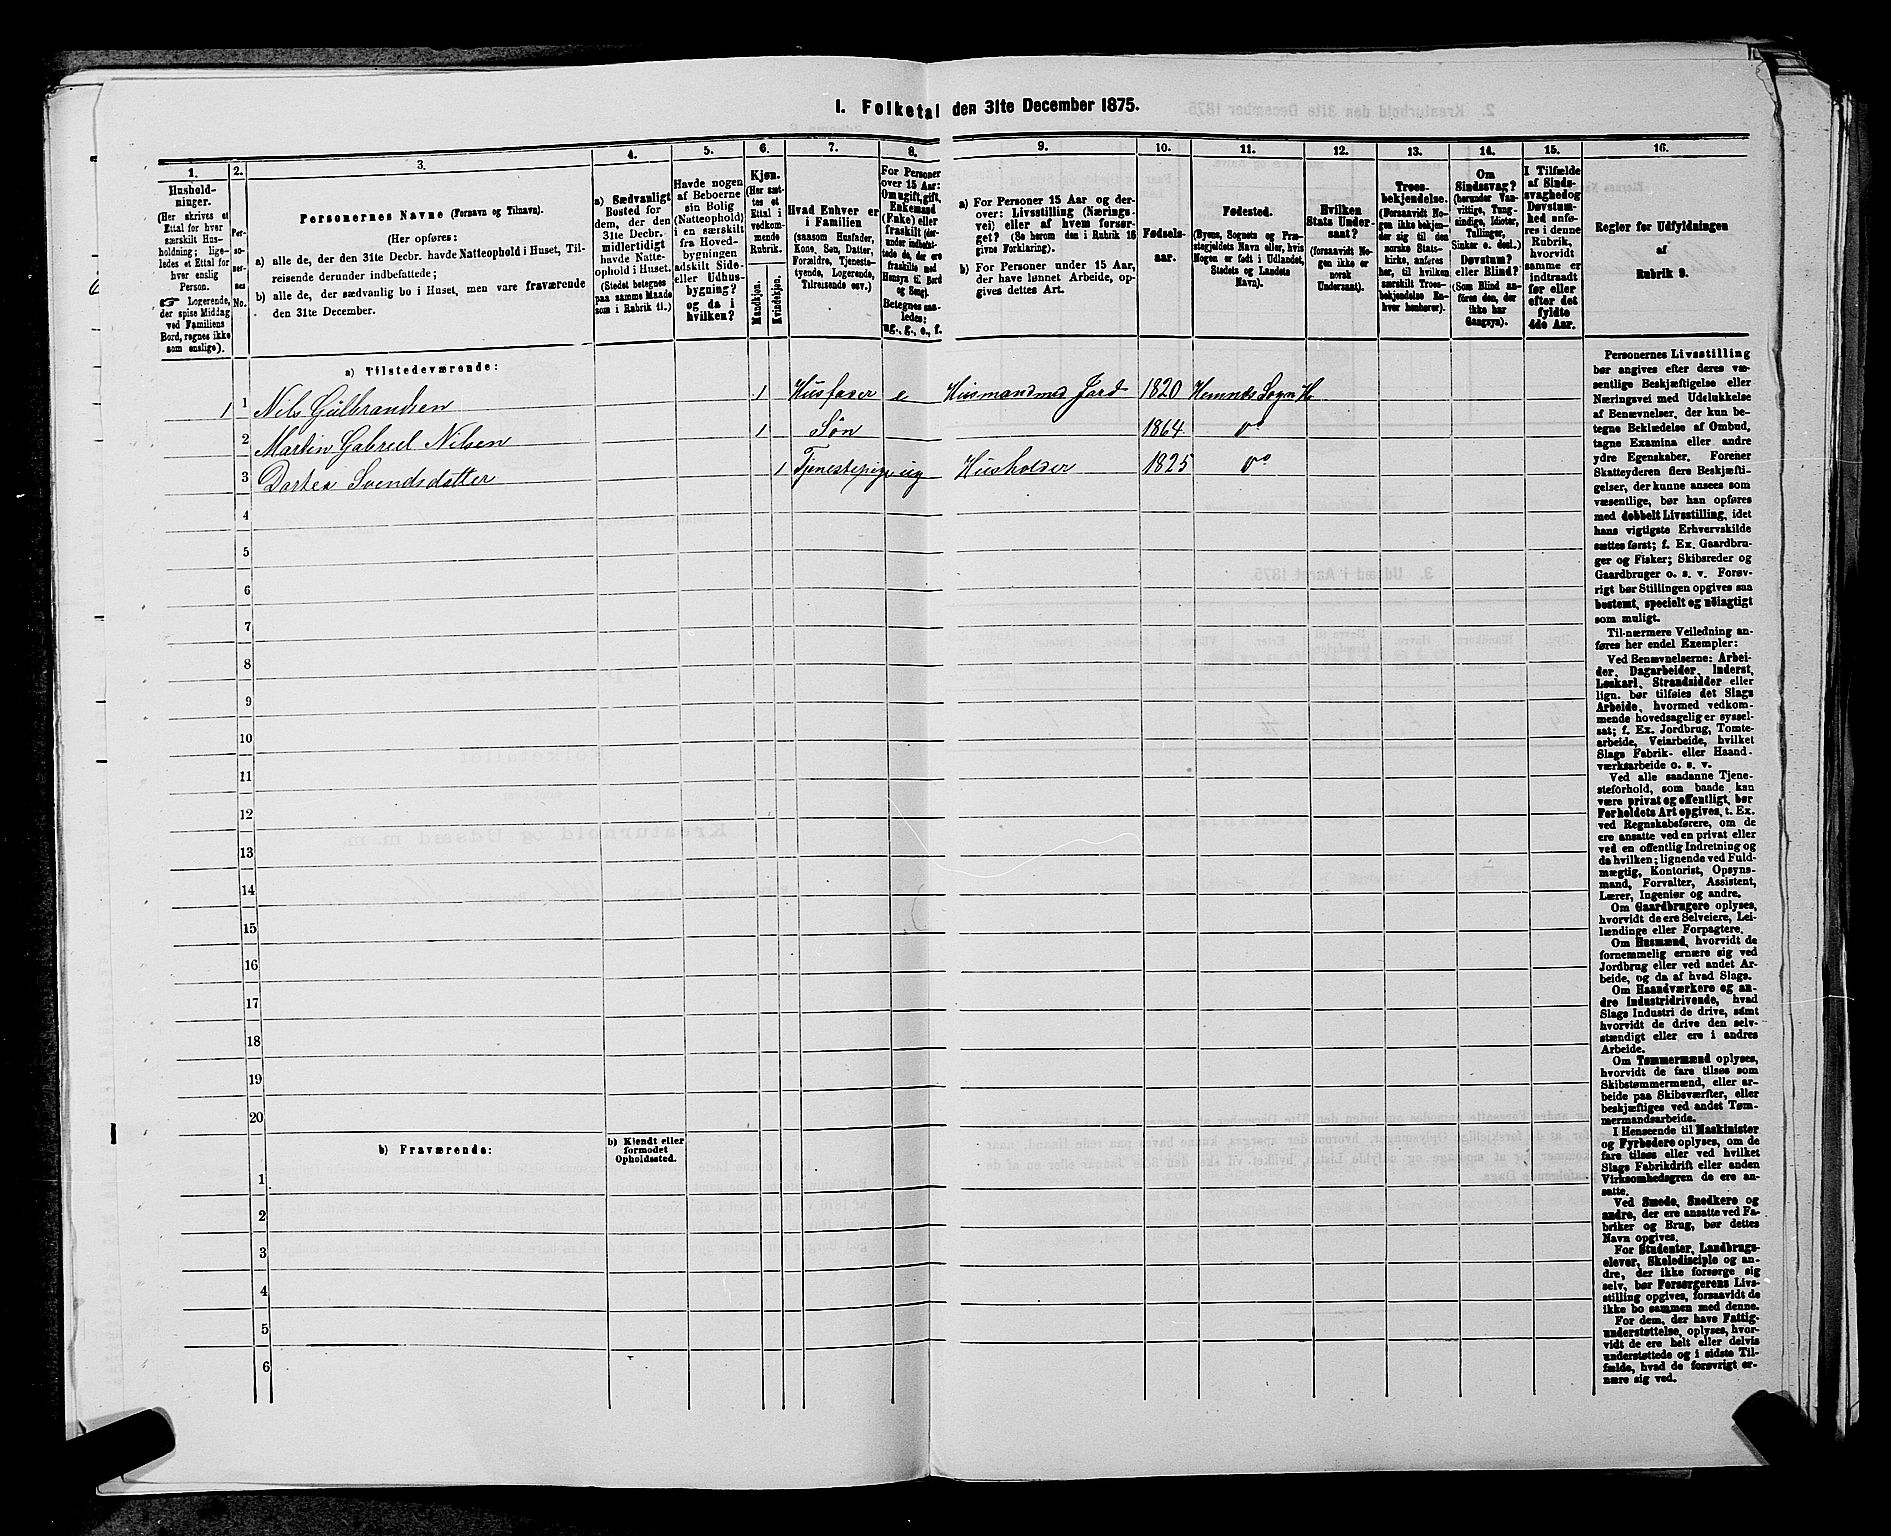 I. Folketal den 31te December 1875.
1.
2.
3.
4.
5.
6.
7.
8.
9.
10.
11.
12.
13.
14.
15.
16.
Hushold-
ninger.
(Her skrives et
Ettal for hver
særskilt Hus-
holdning; lige-
ledes et Ettal for
hver enslig
Person.
☞ Logerende,
der spise Middag
ved Familiens
Bord, regnes ikke
som enslige).
Per-
so-
ner-
nes
No.
Personernes Navne (Fornavn og Tilnavn).
(Her opføres:
a) alle de, der den 31te Decbr. havde Natteophold i Huset, Til-
reisende derunder indbefattede;
b) alle de, der sædvanlig bo i Huset, men vare fraværende
den 31te December.
a) Sædvanligt
Bosted for
dem, der den
31te Decbr.
midlertidigt
havde Natte-
ophold i Huset.
(Stedet betegnes
paa samme Maade
som i Rubrik 11.)
Havde nogen
af Beboerne
sin Bolig
(Natteophold)
i en særskilt
fra Hoved-
bygningen
adskilt Side-
eller Udhus-
bygning?
og da i
hvilken?
Kjøn.
(Her sæt-
tes et
Ettal i
vedkom-
mende
Rubrik.)
Mandkjøn.
Kvindekjøn.
Hvad Enhver er
i Familien
(saasom Husfader,
Kone, Søn, Datter,
Forældre, Tjeneste-
tyende, Logerende,
Tilreisende osv.)
For Personer
over 15 Aar:
Om ugift, gift,
Enkemand
(Enke) eller
fraskilt (der-
under indbefat-
tede de, der ere
fraskilte med
Hensyn til Bord
og Seng).
Betegnes saa-
ledes:
ug., g., e., f.
a) For Personer 15 Aar og der-
over: Livsstilling (Nærings-
vei) eller af hvem forsør-
get? (Se herom den i Rubrik 16
givne Forklaring).
b) For Personer under 15 Aar,
der have lønnet Arbeide, op-
gives dettes Art.
Fødsels-
aar.
Fødested.
(Byens, Sognets og Præ-
stegjeldets Navn eller, hvis
Nogen er født i Udlandet,
Stedets og Landets
Navn).
Hvilken
Stats Under-
saat?
(forsaavidt No-
gen ikke er
norsk
Undersaat).
Troes-
bekjendelse.
(Forsaavidt No-
gen ikke bekjen-
der sig til den
norske Stats-
kirke, anføres
her, til hvilken
særskilt Troes-
bekjendelse En-
hver henhører).
Om
Sindssvag?
(herunder Van-
vittige, Tung-
sindige, Idioter,
Tullinger,
Sinker o. desl.)
Døvstum?
eller Blind?
(Som Blind an-
føres den, der
ikke har
Gangsyn).
I Tilfælde
af Sinds-
svaghed og
Døvstum-
hed anfø-
res i denne
Rubrik,
hvorvidt
samme er
indtraadt
før eller
efter det
fyldte
4de Aar.
Regler for Udfyldningen
af
Rubrik 9.
a) Tilstedeværende:
1 1 Nils Gulbrandsen 1 Husfader e Husmand med Jord 1820 Hemnæs Sogn H
2 Martin Gabriel Nilsen 1 Søn 1864 do
3 Dortea Svendsdatter 1 Tjenestepige ug Husholder 1825 do
4
5
6
7
8
9
10
11
12
13
14
15
16
17
18
19
20
b) Fraværende:
b) Kjendt eller
formodet
Opholdssted.
1
2
3
4
5
6
Personernes Livsstilling
bør angives efter deres væ-
sentlige Beskjæftigelse eller
Næringsvei med Udelukkelse
af Benævnelser, der kun be-
tegne Beklædelse af Ombud,
tagne Examina eller andre
ydre Egenskaber. Forener
Skatteyderen flere Beskjæfti-
gelser, der kunne ansees som
væsentlige, bør han opføres
med dobbelt Livsstilling, idet
hans vigtigste Erhvervskilde
sættes først; f. Ex. Gaardbru-
ger og Fisker; Skibsreder og
Gaardbruger o. s. v. Forøv-
rigt bør Stillingen opgives saa
bestemt, specielt og nöiagtigt
som muligt.
Til nærmere Veiledning an-
føres her endel Exempler:
Ved Benævnelserne: Arbei-
der, Dagarbeider, Inderst,
Løskarl, Strandsidder eller
lign. bør tilføies det Slags
Arbeide, hvormed vedkom-
mende hovedsagelig er syssel-
sat; f. Ex. Jordbrug, Tomte-
arbeide, Veiarbeide, hvilket
Slags Fabrik- eller Haand-
værksarbeide o. s. v.
Ved alle saadanne Tjene-
steforhold, som baade kan
være privat og offentligt, bør
Forholdets Art opgives, t. Ex.
ved Regnskabsførere, om de
ere ansatte ved en privat eller
ved en offentlig Indretning og
da hvilken; lignende ved Fuld-
mægtig, Kontorist, Opsyns-
mand, Forvalter, Assistent,
Lærer, Ingeniør og andre.
Om Gaardbrugere oplyses,
hvorvidt de ere Selveiere, Lei-
lændinge eller Forpagtere.
Om Husmænd, hvorvidt de
fornemmelig ernære sig ved
Jordbrug eller ved andet Ar-
beide, og da af hvad Slags.
Om Haandværkere og an-
dre Industridrivende, hvad
Slags Industri de drive, sámt
hvorvidt de drive den selv-
stændigt eller ere i andres
Arbeide.
Om Tømmermænd oplyses,
hvorvidt de fare tilsøs som
Skibstømmermænd, eller ar-
beide paa Skibsværfter, eller
beskjæftiges ved andet Tøm-
mermandsarbeide.
I Henseende til Maskinister
og Fyrbødere oplyses, om de
fare tilsøs eller ved hvilket
Slags Fabrikdrift eller anden
Virksomhedsgren de ere an-
satte.
Ved Smede, Snedkere og
andre, der ere ansatte ved Fa-
briker og Brug, bør dettes
Navn opgives.
For Studenter, Landbrugs-
elever, Skoledisciple og an-
dre, der ikke forsørge sig
selv, bør Forsørgerens Livs-
stilling opgives, forsaavidt de
ikke bo sammen med denne.
For dem, der have Fattig-
understøttelse, oplyses, hvor-
vidt de ere helt eller delvis
understøttede og i sidste Til-
fælde, hvad de forøvrigt er-
nære sig ved.